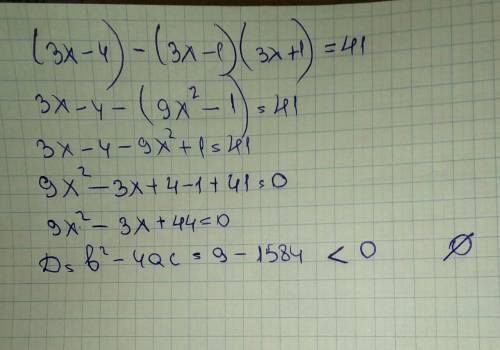 (3x-4)-(3x-1)(3x+1)=41
3x-4-(9x²-1)=41
3x-4-9x²+1=41
9x²-3x+4-1+41=0
9x²-3x+44=0
D=b²-4ac=9-1584<0 ∅